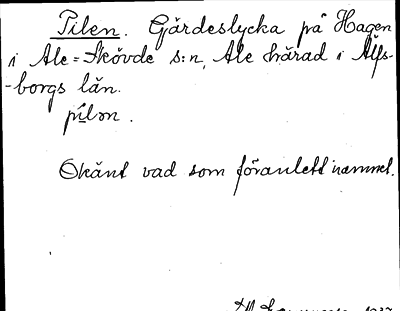 Pilen. Gärdeslycka på Hagen
i Ale=Skövde s:n, Ale härad i Älfs-
-borgs län.
pílən.
Okänt vad som föranlett namnet.